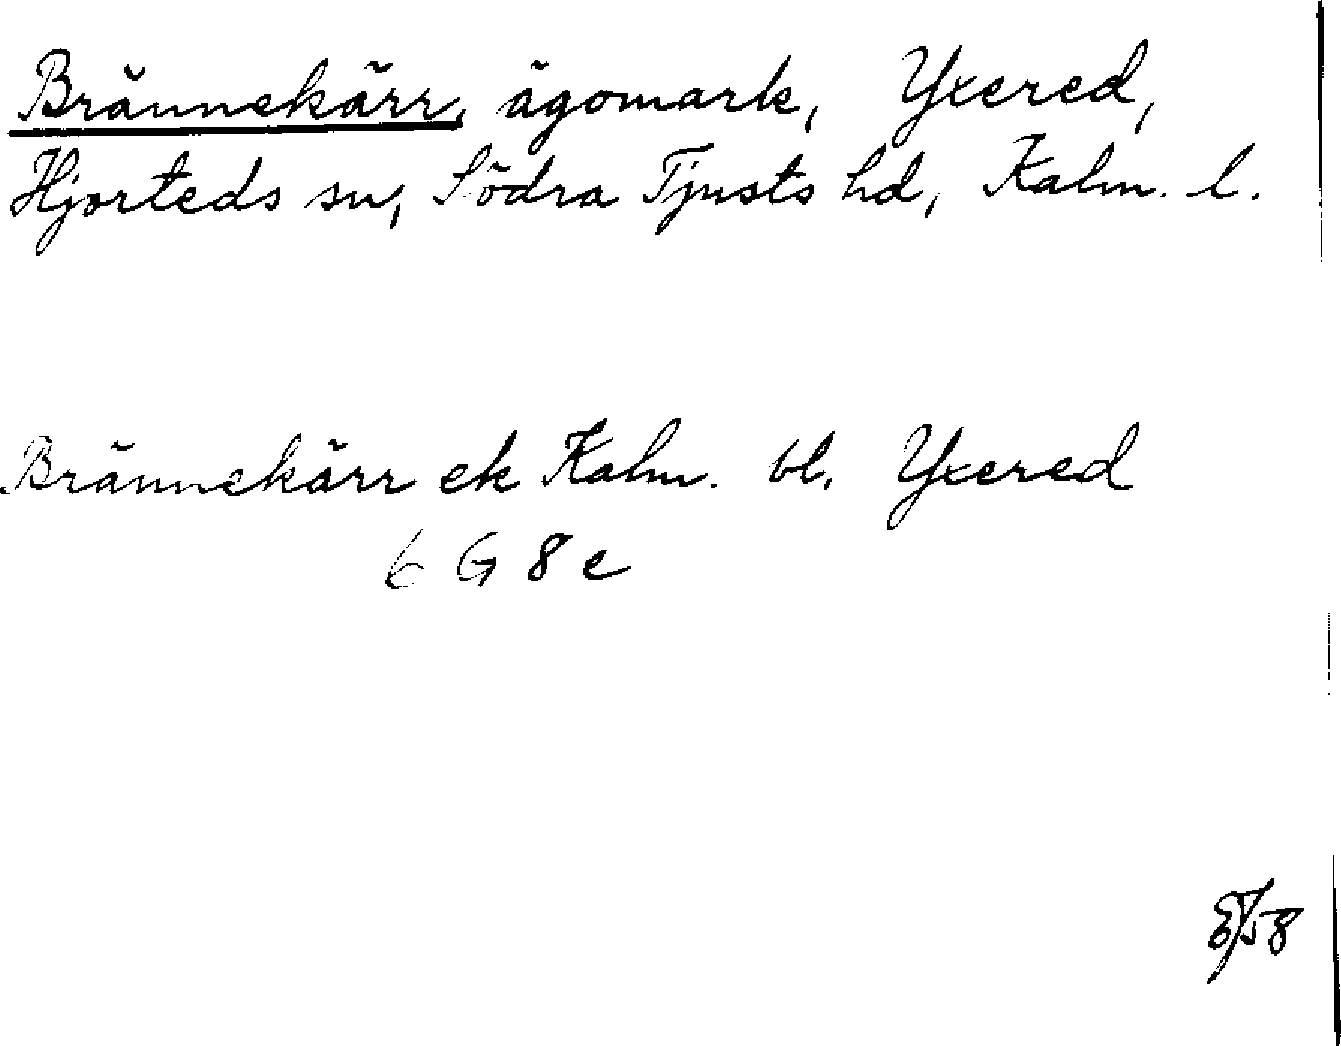 Brännekärr, ägomark, Yxered,
Hjorteds sn, Södra Tjusts hd, Kalm. l.
Brännekärr ek Kalm. bl. Yxered
6 G 8 e